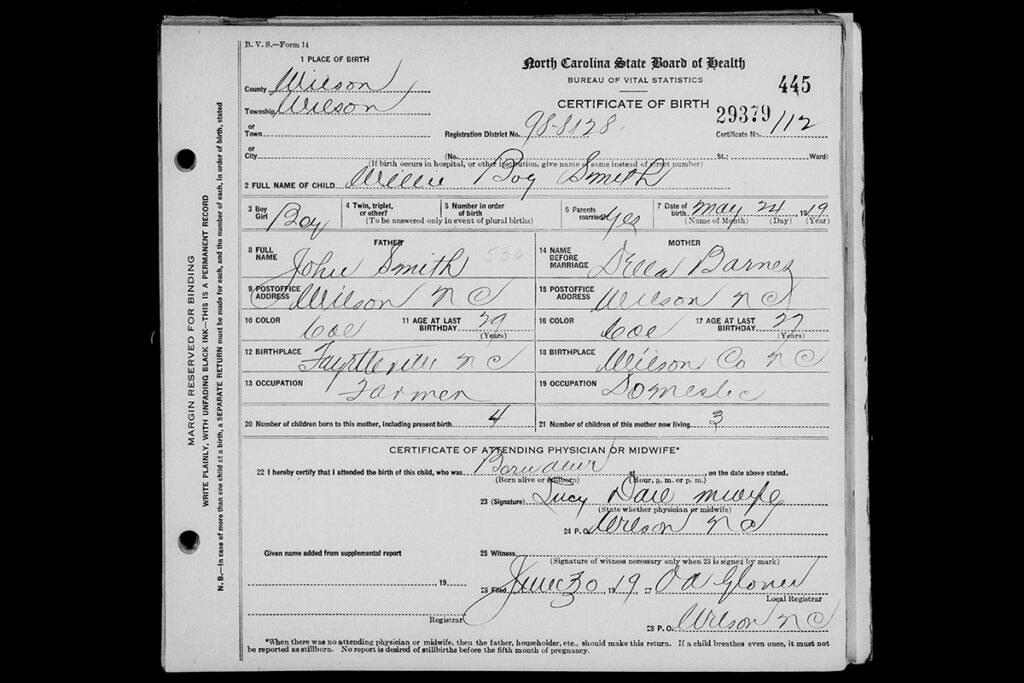 B. V. S.—Form 14
1 PLACE OF BIRTH
County Wilson
Township Wilson
or
Town
or
City
North Carolina State Board of Health
BUREAU OF VITAL STATISTICS
445
CERTIFICATE OF BIRTH
29379
Registration District No. 98-8128 Certificate No. 112
(No. St.; Ward)
(If birth occurs in hospital, or other institution, give name of same instead of street number)
2 FULL NAME OF CHILD Willie Boy Smith
3 Boy Girl Boy 4 Twin, triplet, or other? 5 Number in order of birth 6 Parents married? yes 7 Date of birth May 24, 1919
(To be answered only in event of plural births) (Name of Month) (Day) (Year)
FATHER
8 FULL NAME John Smith 530
9 POSTOFFICE ADDRESS Wilson N C
10 COLOR Col 11 AGE AT LAST BIRTHDAY 29 (Years)
12 BIRTHPLACE N C
13 OCCUPATION Farmer
MOTHER
14 NAME BEFORE MARRIAGE Della Barnes
15 POSTOFFICE ADDRESS Wilson N C
16 COLOR Col 17 AGE AT LAST BIRTHDAY 27 (Years)
18 BIRTHPLACE Wilson Co N C
19 OCCUPATION Domestic
20 Number of children born to this mother, including present birth 4
21 Number of children of this mother now living 3
CERTIFICATE OF ATTENDING PHYSICIAN OR MIDWIFE*
22 I hereby certify that I attended the birth of this child, who was Born at , on the date above stated.
(Born alive or stillborn) (Hour, a. m. or p. m.)
23 (Signature) Lucy
(State whether physician or midwife)
24 P. O. Wilson N C
Given name added from supplemental report
, 19
Registrar
25 Witness
(Signature of witness necessary only when 23 is signed by mark)
26 Filed June 30, 1919 27
Local Registrar
28 P. O. Wilson N C
*When there was no attending physician or midwife, then the father, householder, etc., should make this return. If a child breathes even once, it must not
be reported as stillborn. No report is desired of stillbirths before the fifth month of pregnancy.
MARGIN RESERVED FOR BINDING
WRITE PLAINLY, WITH UNFADING BLACK INK—THIS IS A PERMANENT RECORD
N. B.—In case of more than one child at a birth, a SEPARATE RETURN must be made for each, and the number of each, in order of birth, stated